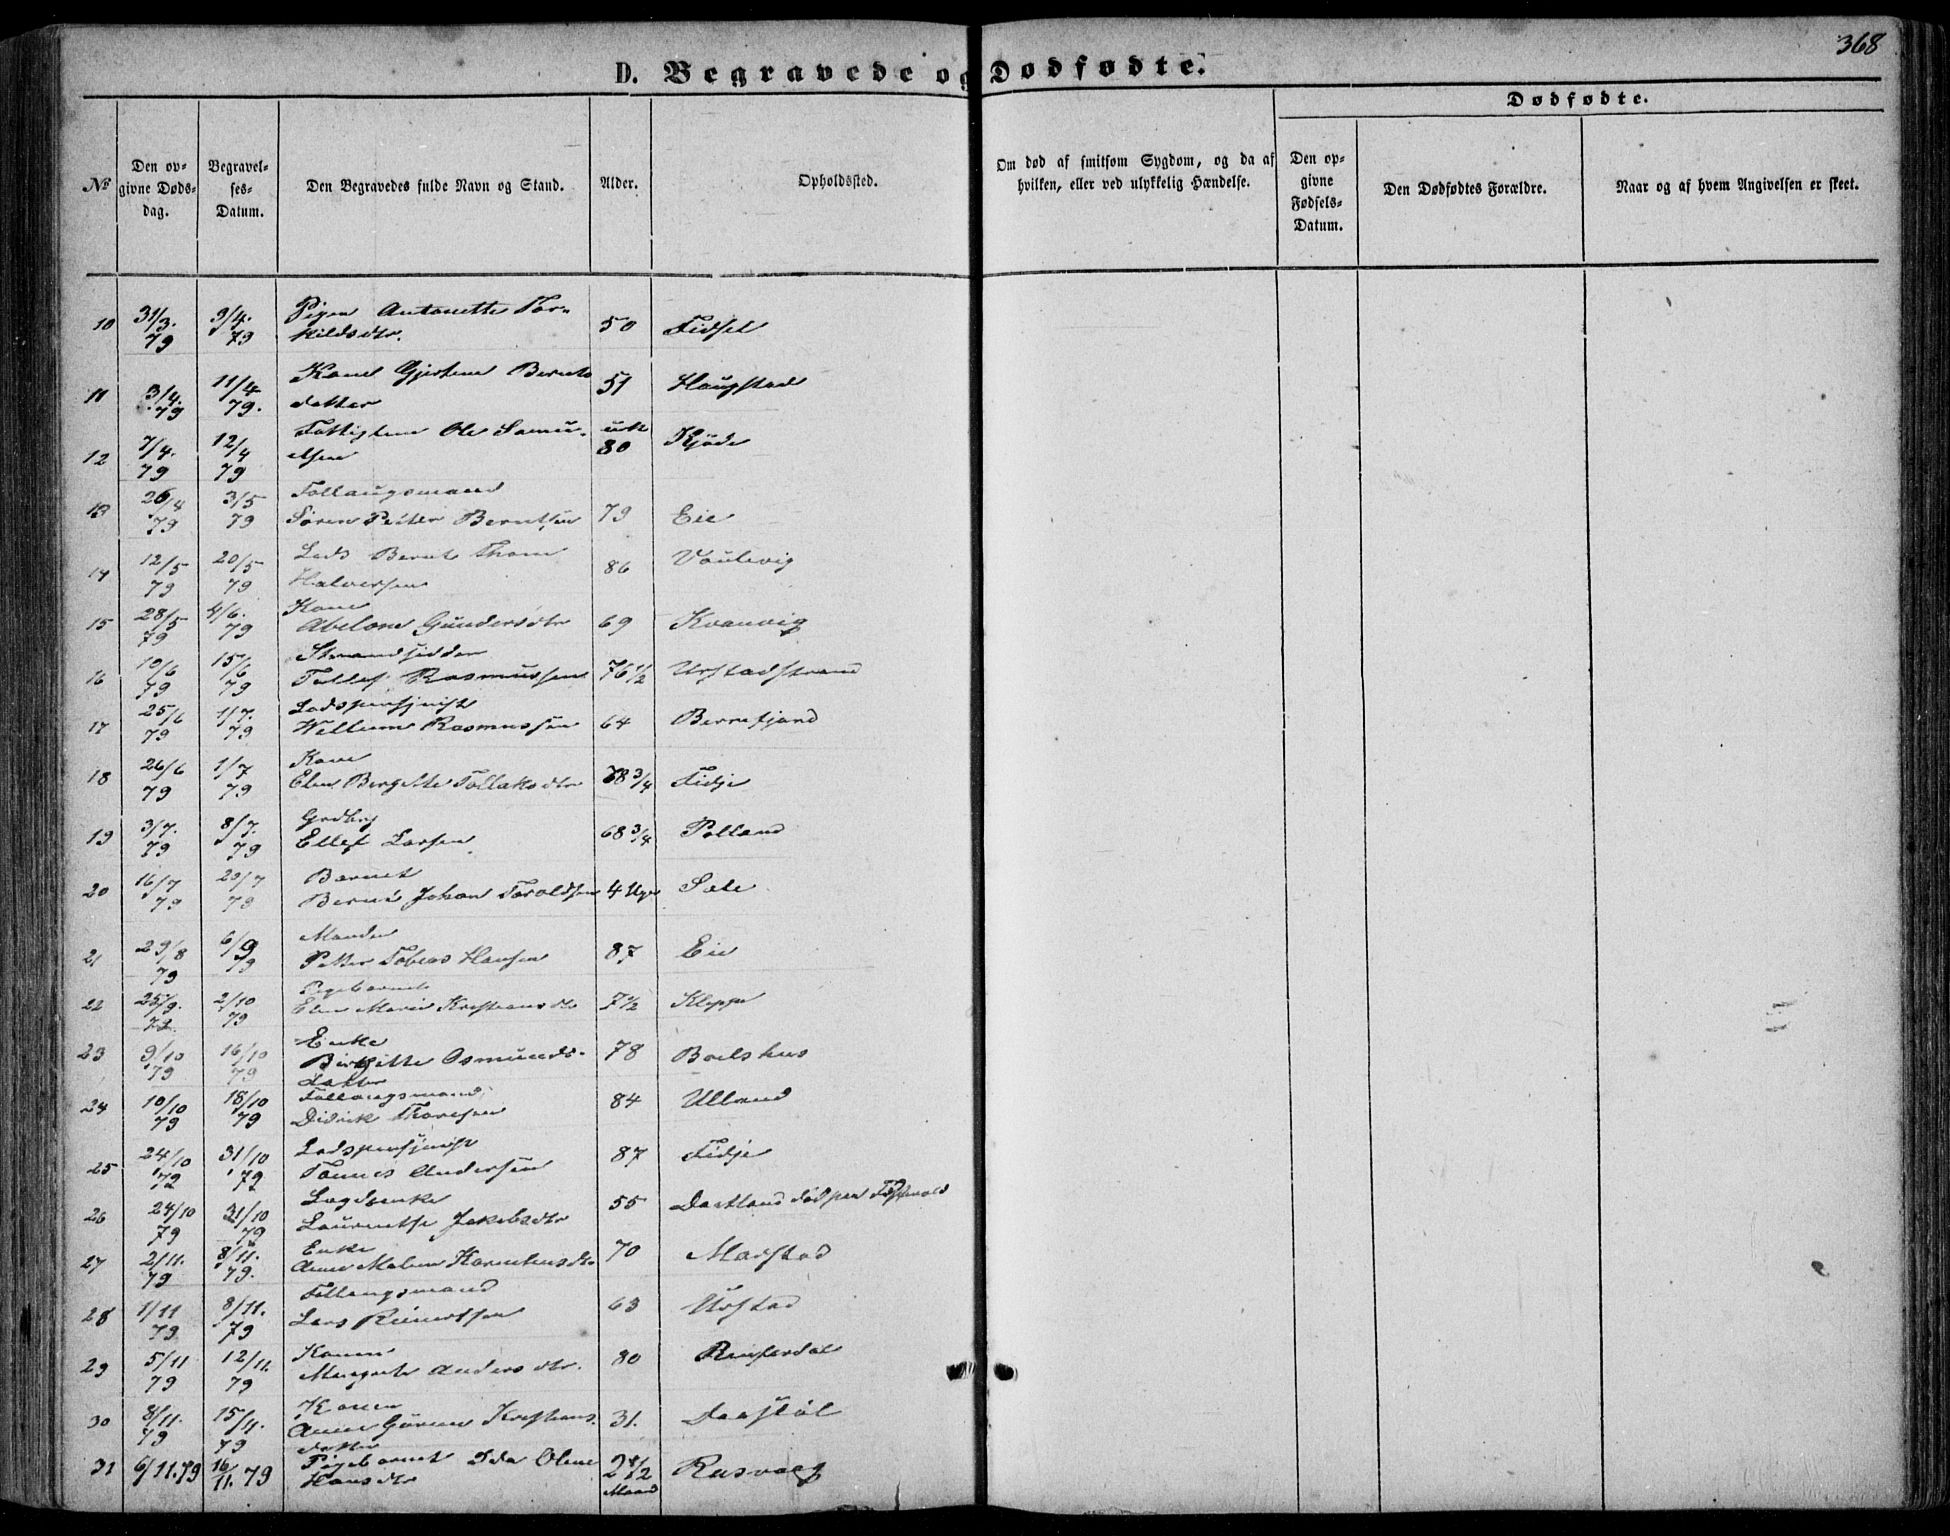 368
D. Begravede og Dødfødte.
Dødfødte.
№
Den opgivne Døds-dag.
Begravel-ses-Datum.
Den Begravedes fulde Navn og Stand.
Alder.
Opholdssted.
Om død af smitsom Sygdom, og da af hvilken, eller ved ulykkelig Hændelse.
Den op-givne Fødsels-Datum.
Den Dødfødtes Forældre.
Naar og af hvem Angivelsen er skeet.
10 31/3. 79 9/4. 79 Pigen Antonette Tor-
kildsdtr. 50 Fidsel
11 3/4. 79 11/4 79. Kone Gjertine Bernts
datter 51 Haugstad
12 7/4. 79 12/4 79 Fattiglem Ole Samu-
elsen 80 Kjöde
13 26/4 79 3/5 79 Follaugsmand
Sören Peiter Berntsen 79 Eie
14 12/5 79 20/5 79 Lods Bernt Thom
Halvorsen 86 Vaulevig
15 28/5 79 4/6. 79 Kone
Abelone Gundersdtr 69 Kvanvig
16 10/6 79 15/6 79 Strandsidder
Tollef Rasmussen 76 1/2 Urstadstrand
17 25/6 79 1/7. 79 Lodspensjonist
Wellum Rasmussen 64 Berrefjord
18 26/6 79 1/7 79 Kone
Elen Bergitte Tollaksdtr 68 3/4 Fidje
19 3/7. 79 8/7. 79 Grdbrg
Ellef Larsen 68 3/4 Polland
20 16/7 79 20/7 79 Barnet
Bernt Johan Toroldsen 4 Uger Sæle
21 29/8 79 6/9 79 Manden
Petter Tobias Hansen 87 Eie
22 25/9. 79 2/10 79 Pigebarnet
Elen Marie Kristiansdtr 7 1/2 Kleppe
23 9/10 79 16/10 79 Enke
Birgitte Osmunds-
datter 78 Boelshus
24 10/10 79 18/10 79 Follaugsmand
Didrik Thoresen 84 Ulland
25 24/10 79 31/10 79 Lodspensjonist
Tönnes Andersen 87 Fidje
26 24/10 79 31/10 79 Lægdsenke
Laurentse Jakobsdtr 55 Dastland død paa
27 2/11. 79 8/11. 79. Enke
Anne Malene Korneliusdtr 70 Marstad
28 1/11 79 8/11. 79 Follaugsmand
Lars Reinertsen 63 Urstad
29 5/11 79 12/11. 79 Konen
Margrete Andersdtr. 80 Reiserdal
30 8/11. 79 15/11. 79 Konen
Anne Gurine Kristians-
datter 31. Daastöl
31 6/11. 79 16/11. 79 Pigebarnet Ida Oline
Hansdtr 2 1/2 Maand Rasvaag